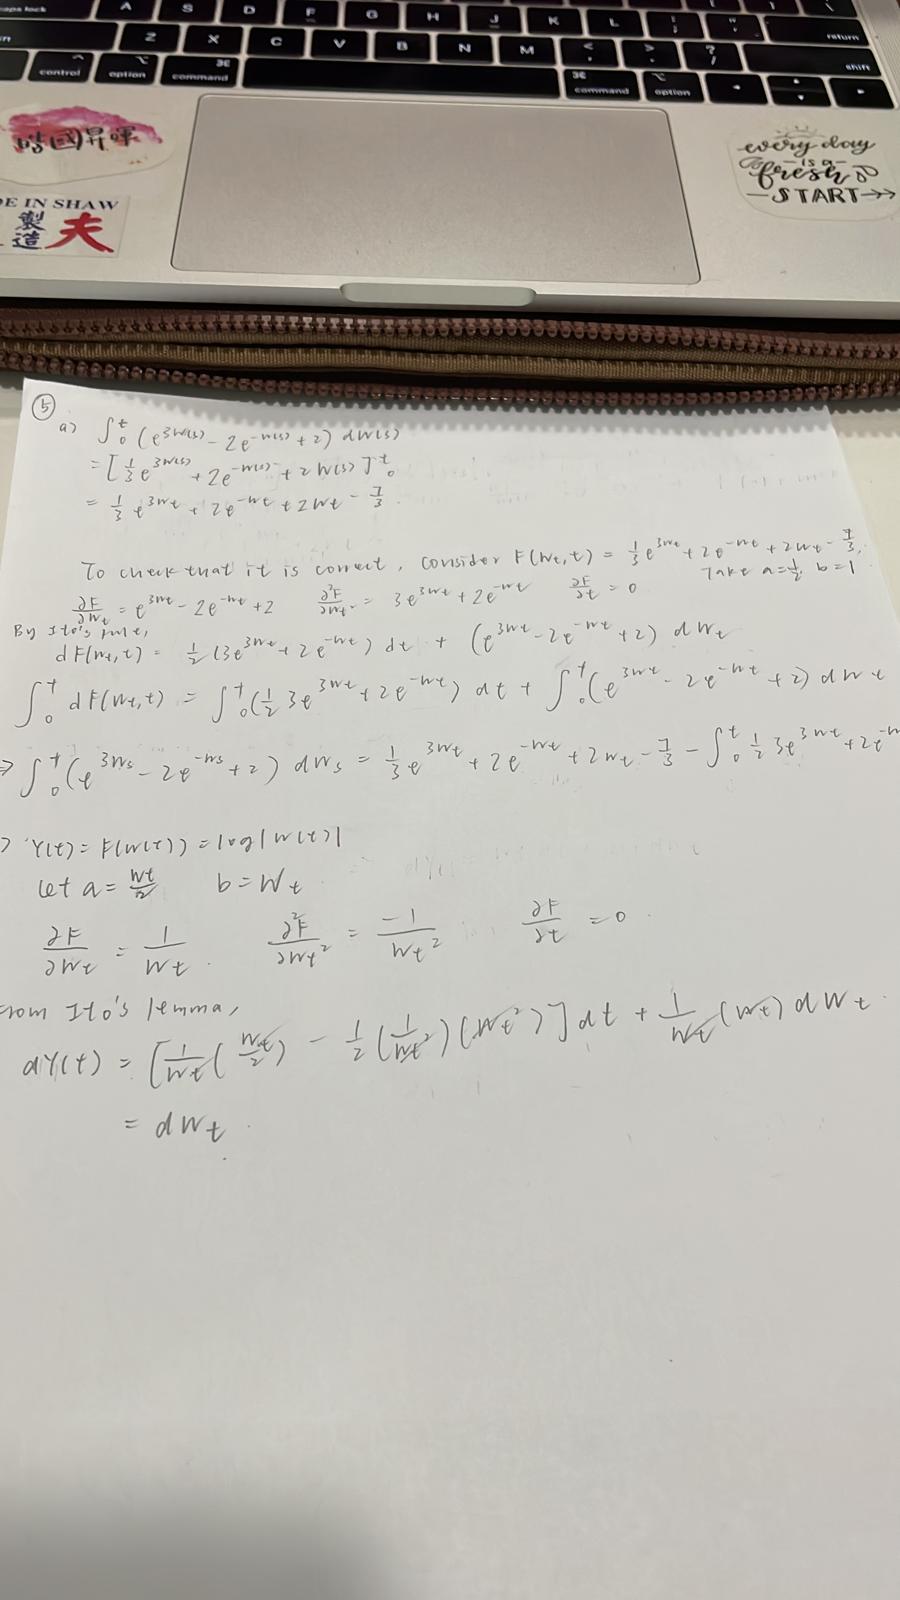 caps lock A S D F G H J K L : ; " ' return
Z X C V B N M < , > . ? / shift
control option ⌘ command ⌘ command option
皓國昇暉
every day
is a
fresh
START
E IN SHAW
製造 夫
⑤
a) ∫₀ᵗ (e^{3W(s)} - 2e^{-W(s)} + 2) dW(s)
= [⅓ e^{3W(s)} + 2e^{-W(s)} + 2W(s)]₀ᵗ
= ⅓ e^{3Wt} + 2e^{-Wt} + 2Wt - 7/3.
To check that it is correct, consider F(Wt,t) = ⅓ e^{3Wt} + 2e^{-Wt} + 2Wt - 7/3.
∂F/∂Wt = e^{3Wt} - 2e^{-Wt} + 2 ∂²F/∂Wt² = 3e^{3Wt} + 2e^{-Wt} ∂F/∂t = 0 Take a=½, b=1
By Ito's rule,
dF(Wt,t) = ½(3e^{3Wt} + 2e^{-Wt}) dt + (e^{3Wt} - 2e^{-Wt} + 2) dWt
∫₀ᵗ dF(Wt,t) = ∫₀ᵗ (½ 3e^{3Wt} + 2e^{-Wt}) dt + ∫₀ᵗ (e^{3Wt} - 2e^{-Wt} + 2) dWt
⇒ ∫₀ᵗ (e^{3Ws} - 2e^{-Ws} + 2) dWs = ⅓ e^{3Wt} + 2e^{-Wt} + 2Wt - 7/3 - ∫₀ᵗ ½ 3e^{3Wt} + 2e^{-W
) Y(t) = F(W(t)) = log|W(t)|
Let a = Wt/2 b = Wt
∂F/∂Wt = 1/Wt. ∂²F/∂Wt² = -1/Wt² ∂F/∂t = 0.
rom Ito's lemma,
dY(t) = [1/Wt (Wt/2) - ½ (1/Wt²)(Wt²)] dt + 1/Wt (Wt) dWt.
= dWt.